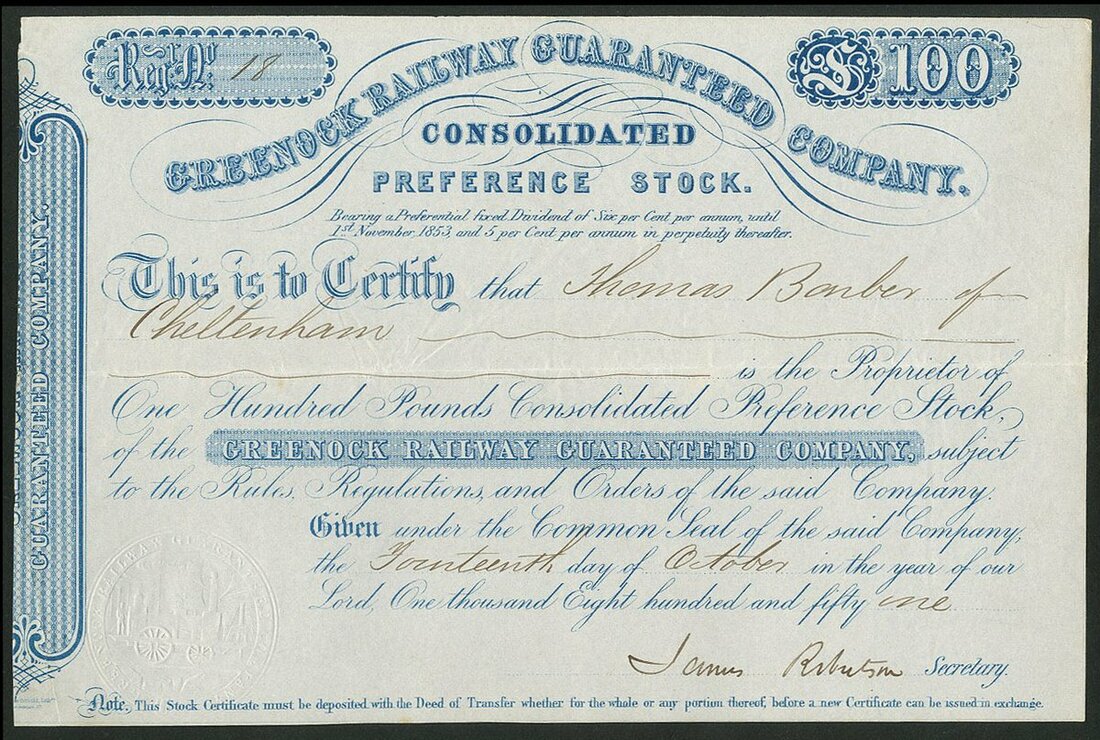 Regr. No. 18
S 100
GREENOCK RAILWAY GUARANTEED COMPANY.
CONSOLIDATED
PREFERENCE STOCK.
Bearing a Preferential fixed Dividend of Six per Cent per annum, until
1st November, 1853, and 5 per Cent per annum in perpetuity thereafter.
This is to Certify that Thomas Barber of
Cheltenham
is the Proprietor of
One Hundred Pounds Consolidated Preference Stock,
of the GREENOCK RAILWAY GUARANTEED COMPANY, subject
to the Rules, Regulations, and Orders of the said Company.
Given under the Common Seal of the said Company,
the Fourteenth day of October in the year of our
Lord, One thousand Eight hundred and fifty one
James Robertson Secretary.
Note, This Stock Certificate must be deposited with the Deed of Transfer whether for the whole or any portion thereof, before a new Certificate can be issued in exchange.
GUARANTEED COMPANY.
RAILWAY GUARANTEED